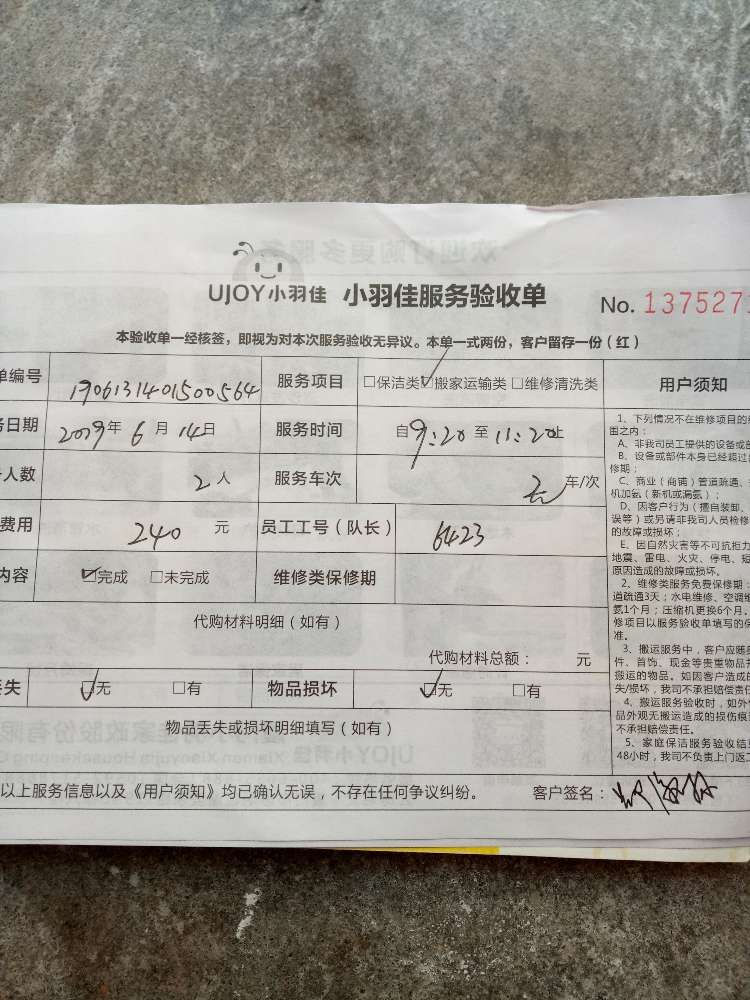 UJOY小羽佳 小羽佳服务验收单 No. 1375271
本验收单一经核签，即视为对本次服务验收无异议。本单一式两份，客户留存一份（红）
单编号 1906131401500564 服务项目 □保洁类 ☑搬家运输类 □维修清洗类 用户须知
务日期 2019年 6 月 14日 服务时间 自9:20至11:20止
人数 2人 服务车次 车/次
费用 240 元 员工工号（队长） 6423
内容 ☑完成 □未完成 维修类保修期
代购材料明细（如有）
代购材料总额： 元
丢失 ☑无 □有 物品损坏 ☑无 □有
物品丢失或损坏明细填写（如有）
以上服务信息以及《用户须知》均已确认无误，不存在任何争议纠纷。 客户签名：
1、下列情况不在维修项目的
围之内：
A、非我司员工提供的设备或
B、设备或部件本身已经超过
修期；
C、商业（商铺）管道疏通、
机加氨（新机或漏氨）；
D、因客户行为（擅自装卸、
误等）或另请非我司人员检修
的故障或损坏；
E、因自然灾害等不可抗拒力
地震、雷电、火灾、停电、短
原因造成的故障或损坏。
2、维修类服务免费保修期：
道疏通3天；水电维修、空调
氨1个月；压缩机更换6个月。
修项目以服务验收单填写的保
准。
3、搬运服务中，客户应随
件、首饰、现金等贵重物品
搬运的物品。如因客户造成的
失/损坏，我司不承担赔偿责
4、搬运服务验收时，如外
品外观无搬运造成的损伤痕
不承担赔偿责任。
5、家庭保洁服务验收结
48小时，我司不负责上门返工